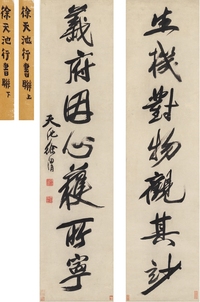 生機對物觀其妙
義府因心獲所寧
天池徐渭
徐天池行書聯 上
徐天池行書聯 下